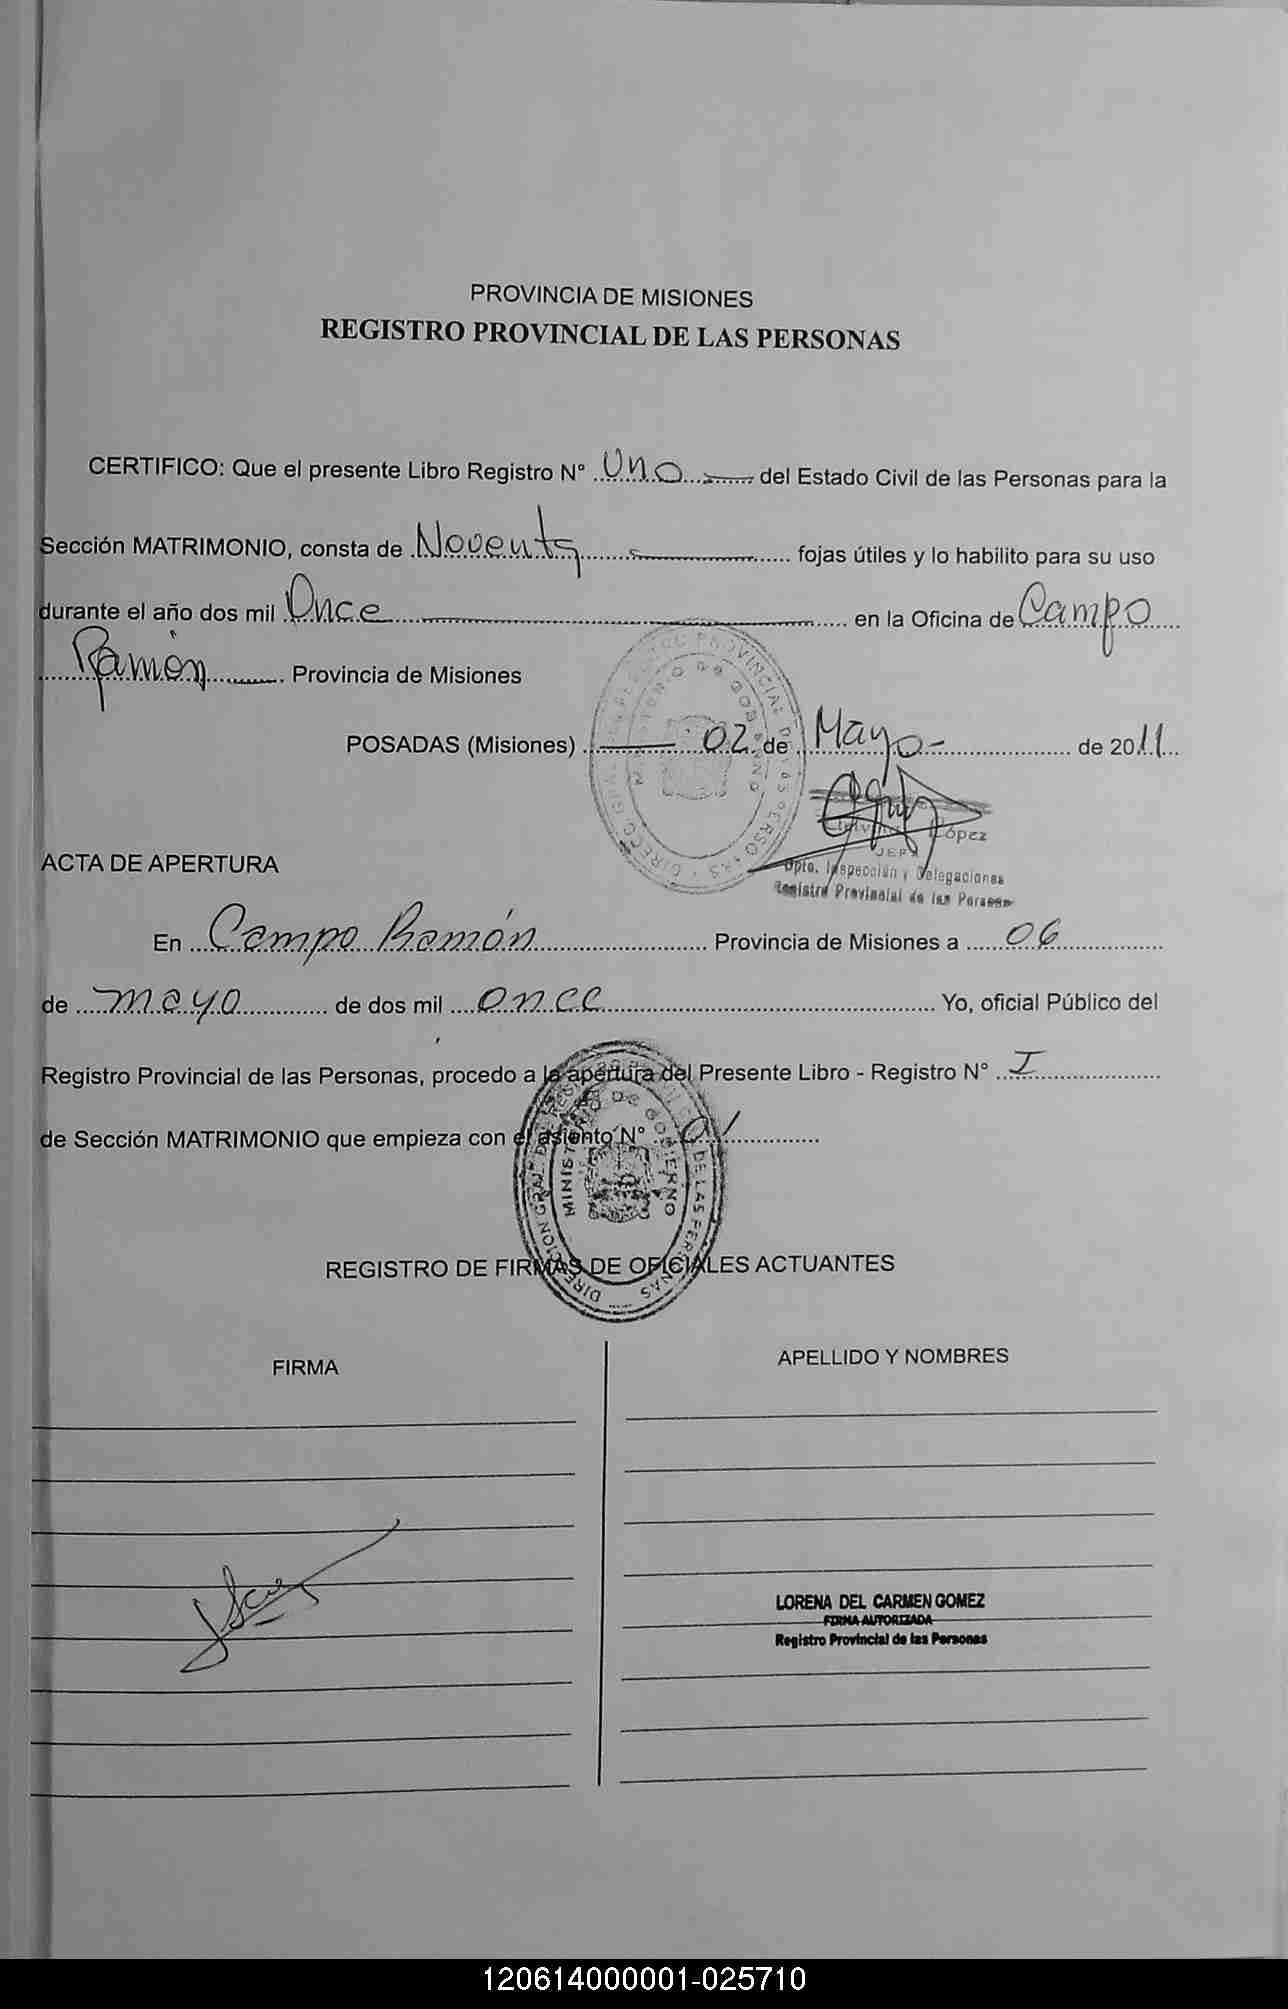 PROVINCIA DE MISIONES
REGISTRO PROVINCIAL DE LAS PERSONAS
CERTIFICO: Que el presente Libro Registro N° Uno del Estado Civil de las Personas para la
Sección MATRIMONIO, consta de Noventa fojas útiles y lo habilito para su uso
durante el año dos mil Once en la Oficina de Campo
Ramón Provincia de Misiones
POSADAS (Misiones) 02 de Mayo de 2011
López
JEFA
Dpto. Inspección y Delegaciones
Registro Provincial de las Personas
ACTA DE APERTURA
En Campo Ramón Provincia de Misiones a 06
de mayo de dos mil once Yo, oficial Público del
Registro Provincial de las Personas, procedo a la apertura del Presente Libro - Registro N° I
de Sección MATRIMONIO que empieza con el asiento N° 01
MINISTERIO DE GOBIERNO
REGISTRO DE FIRMAS DE OFICIALES ACTUANTES
FIRMA
APELLIDO Y NOMBRES
LORENA DEL CARMEN GOMEZ
FIRMA AUTORIZADA
Registro Provincial de las Personas
120614000001-025710